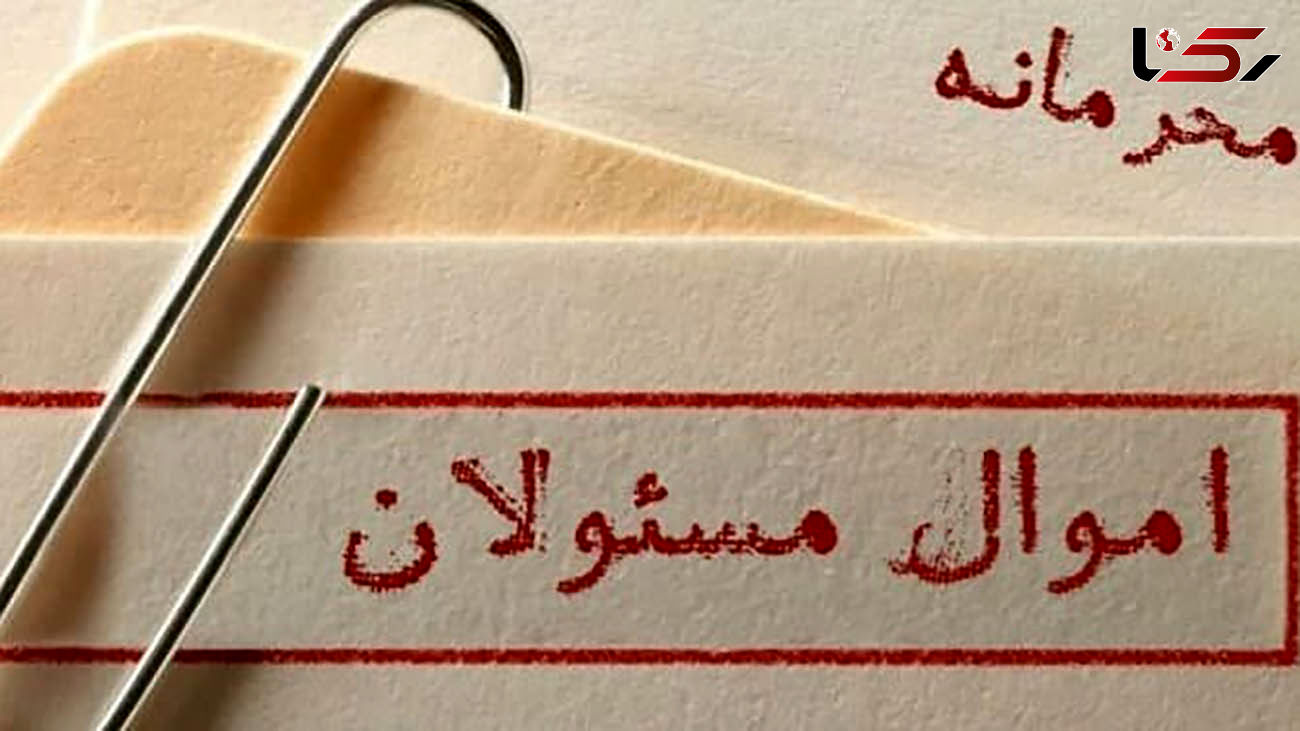 رکنا
محرمانه
اموال مسئولان